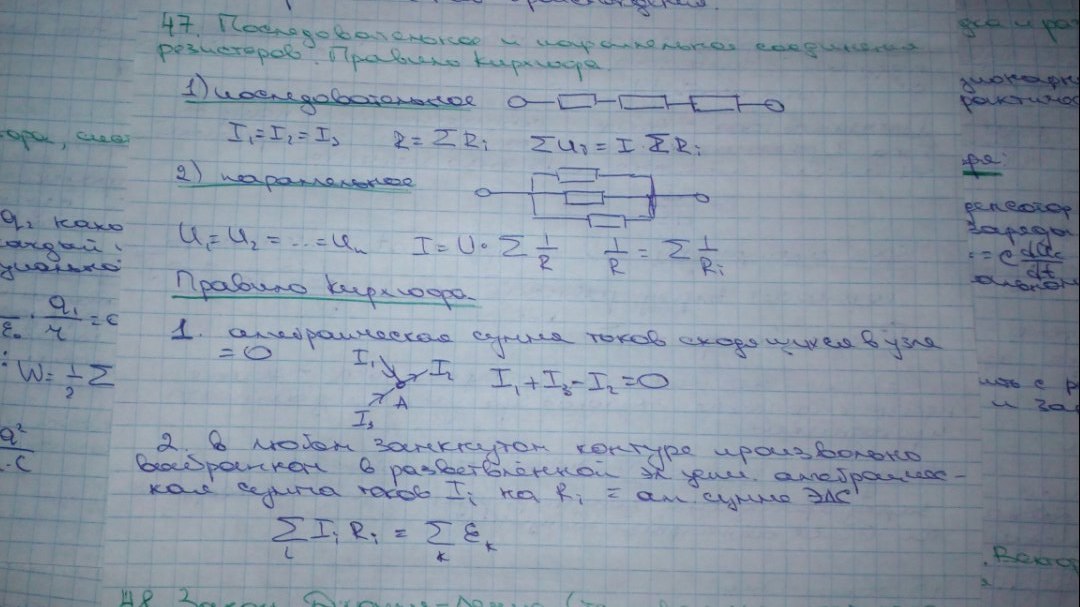 47. Последовательное и параллельное соединения
резисторов. Правило Кирхгофа.
1) последовательное
I₁=I₂=I₃ R=ΣRᵢ ΣUᵢ=I·ΣRᵢ
2) параллельное
U₁=U₂=...=Uₙ I=U·Σ1/R 1/R=Σ1/Rᵢ
Правило Кирхгофа
1. алгебраическая сумма токов сходящихся в узле
=0 I₁ I₂ I₃ A I₁+I₃-I₂=0
2. в любом замкнутом контуре произвольно
выбранном в разветвлённой эл цепи. алгебраичес-
кая сумма токов Iᵢ на Rᵢ = ал. сумме ЭДС
Σᵢ Iᵢ Rᵢ = Σₖ Ɛₖ
48 Закон Джоуля-Ленца
q₂ како
каждый
W=1/2 Σ
заряда
и зар